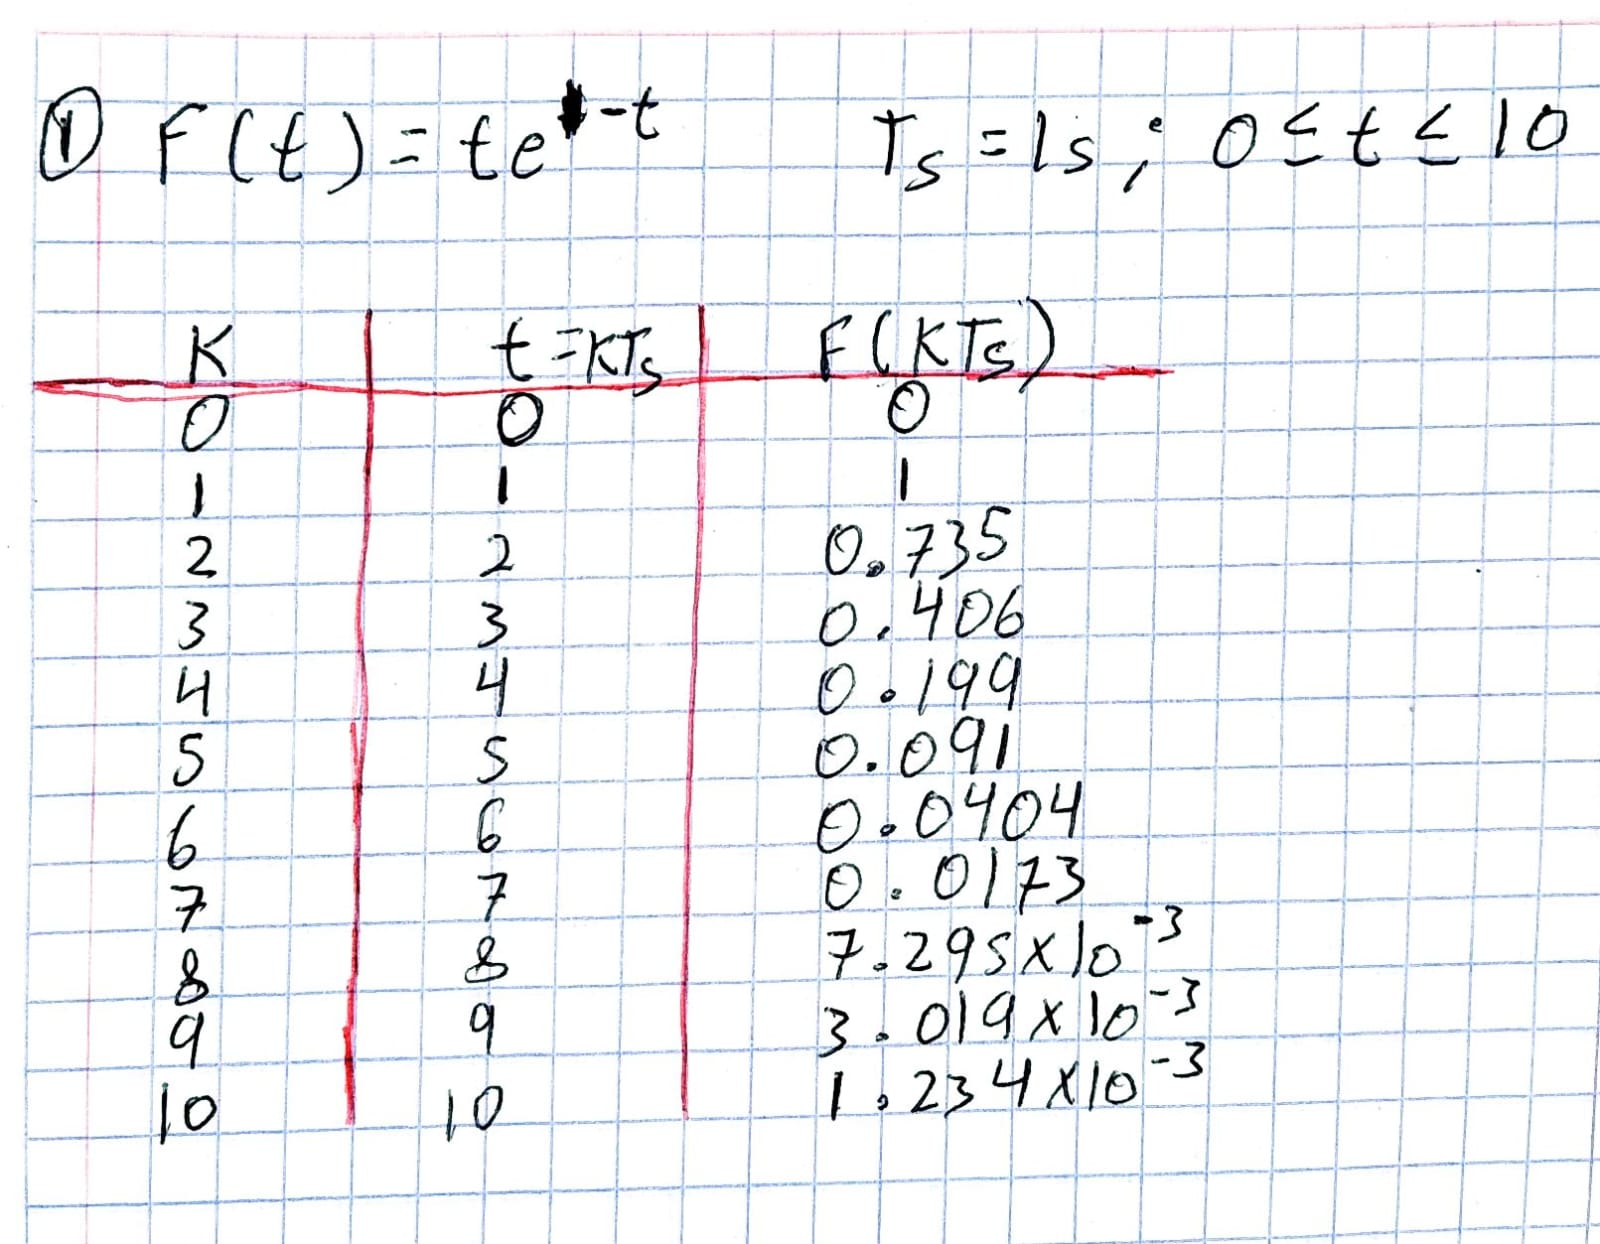 ① F(t) = te^-t Ts = 1s ; 0 ≤ t ≤ 10
K t = KTs F(KTs)
0 0 0
1 1 1
2 2 0.735
3 3 0.406
4 4 0.199
5 5 0.091
6 6 0.0404
7 7 0.0173
8 8 7.295 x 10^-3
9 9 3.019 x 10^-3
10 10 1.234 x 10^-3